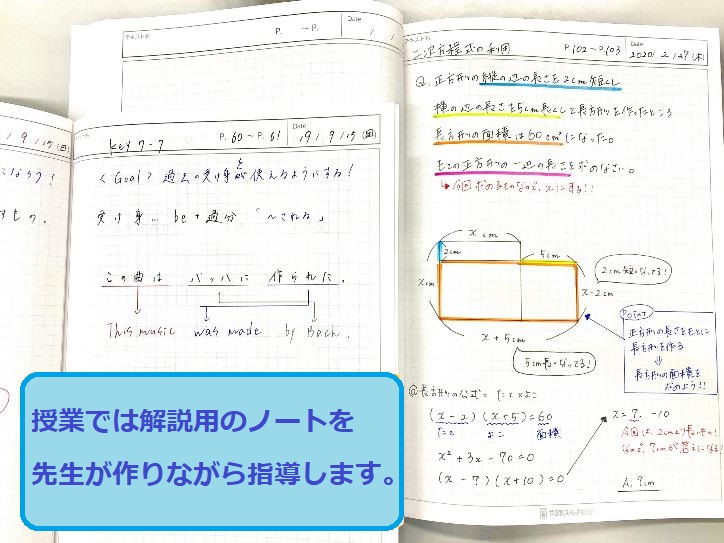 テキスト名
P. ～P.
Date
/ /
/ 9 / 15 (日)
になろう!
すもの.
key 7-7
P. 60 ～ P. 61
Date
19 / 9 / 15 (日)
<Goal> 過去の受け身が使えるようにする!
を
受け身… be + 過分 「～される」
この曲は バッハに 作られた.
This music was made by Bach.
テキスト名
二次方程式の利用
P.102～P.103
Date
2020 / 2 / 27 (木)
Q. 正方形の縦の辺の長さを2cm短くし
横の辺の長さを5cm長くして長方形を作ったところ
長方形の面積は60cm²になった。
もとの正方形の一辺の長さを求めなさい。
↳今回求めるものなので、xにする!!
x cm
2cm
5cm
2cm短くなってる!
x cm
x-2cm
x + 5cm
5cm長くなってる!
POINT
正方形の長さをもとに
長方形を作る
⇓
長方形の面積を
求めよう!!
@長方形の公式 = たて×よこ
(x-2)(x+5)=60
たて よこ 面積
x²+3x-70=0
(x-7)(x+10)=0
x=7. -10
今回は、2cmより長いもの!
なので、7cmが答えになる!
A. 7cm
やる気スイッチ
授業では解説用のノートを
先生が作りながら指導します。